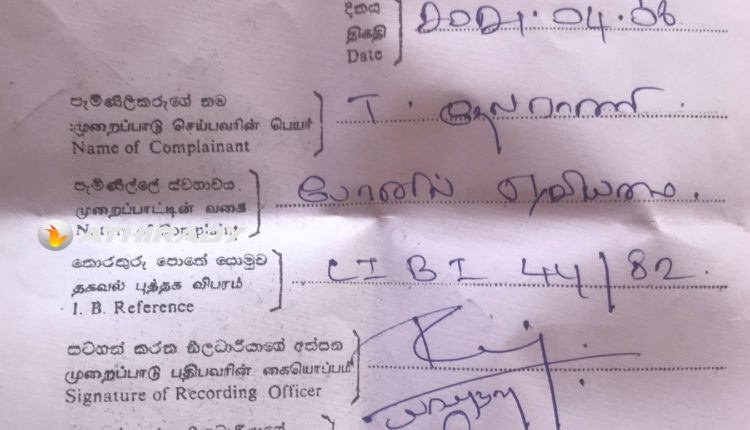 දිනය
திகதி
Date
2021.04.06
පැමිණිලිකරුගේ නම
முறைப்பாடு செய்பவரின் பெயர்
Name of Complainant
T.
පැමිණිල්ලේ ස්වභාවය
முறைப்பாட்டின் வகை
Nature of Complaint
போனில்
තොරතුරු පොතේ යොමුව
தகவல் புத்தக விபரம்
I. B. Reference
CIBI 44/82.
සටහන් කරන නිලධාරියාගේ අත්සන
முறைப்பாடு பதிபவரின் கையொப்பம்
Signature of Recording Officer